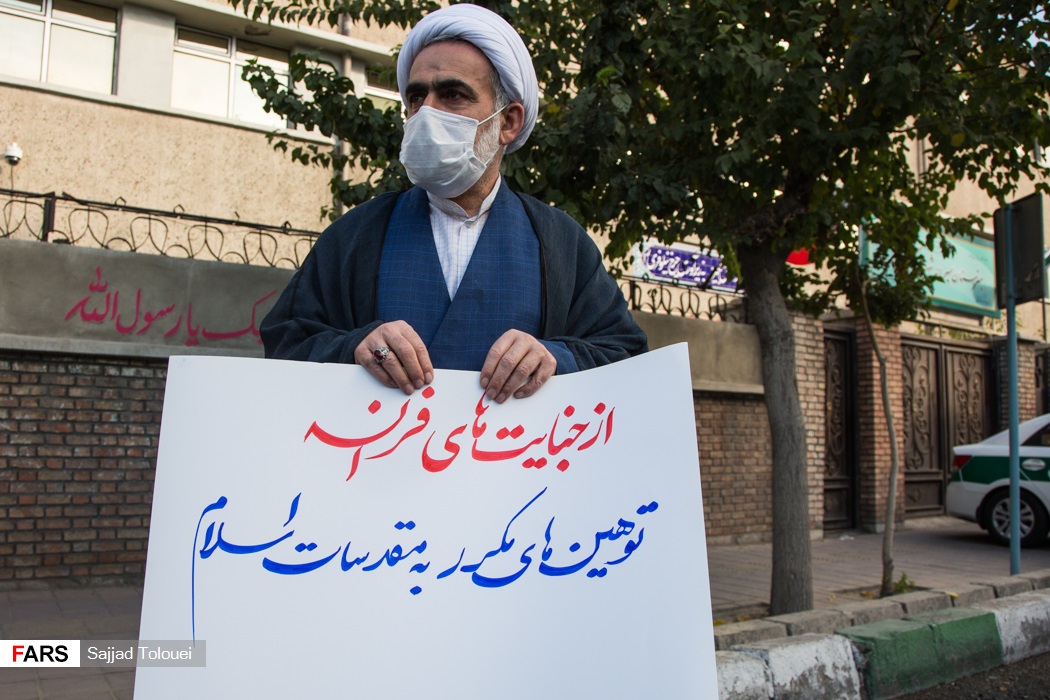 از جنایت‌های فرانسه
توهین‌های مکرر به مقدسات اسلام
لبیک یا رسول الله
FARS Sajjad Tolouei